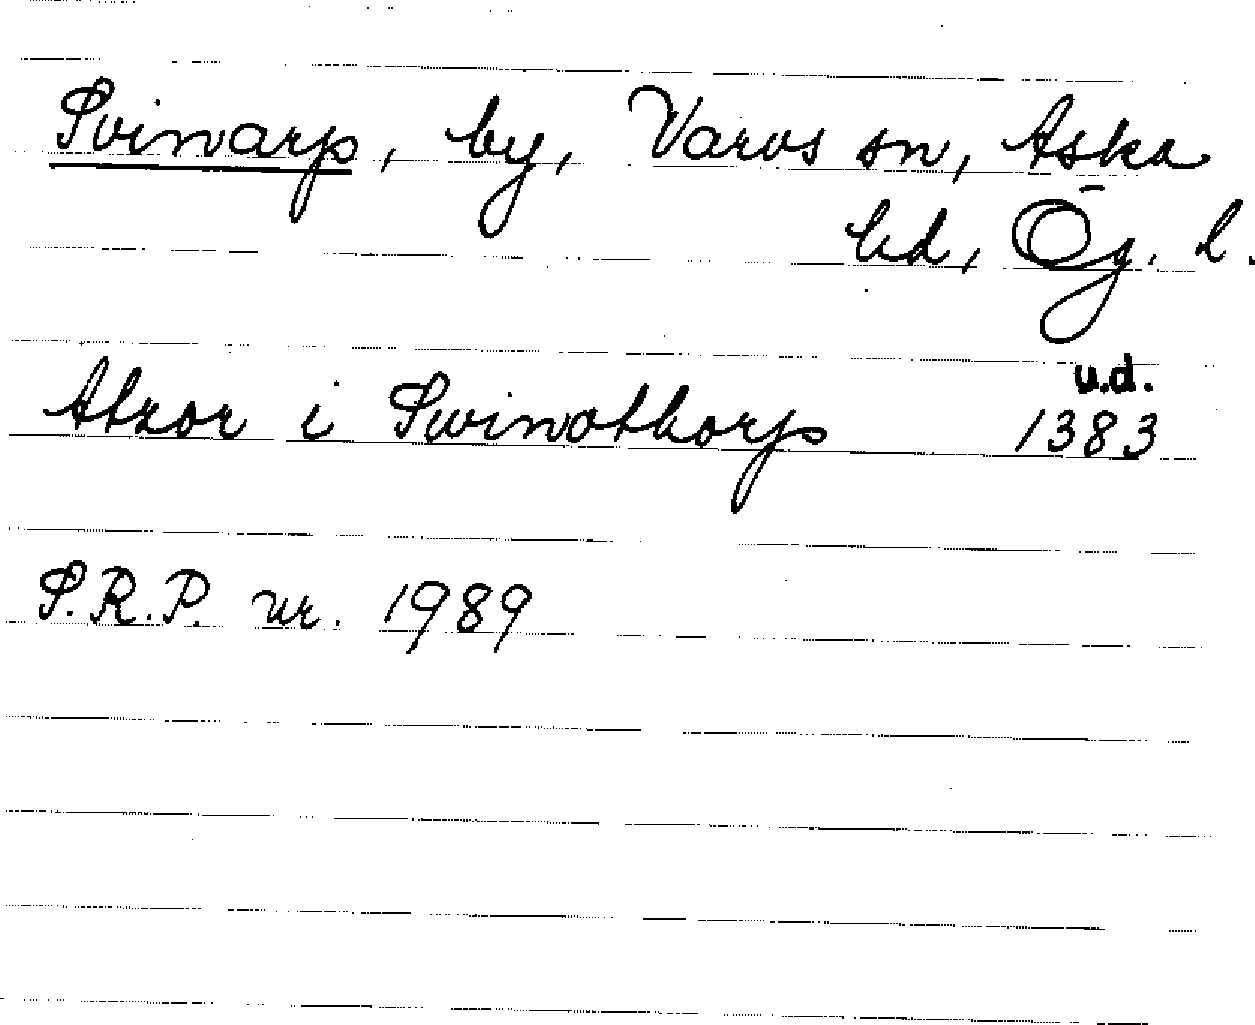 Svinarp, by, Varvs sn, Aska
hd, Ög. l.
u.d.
Atzor i Swinothorp 1383
S.R.P. nr. 1989